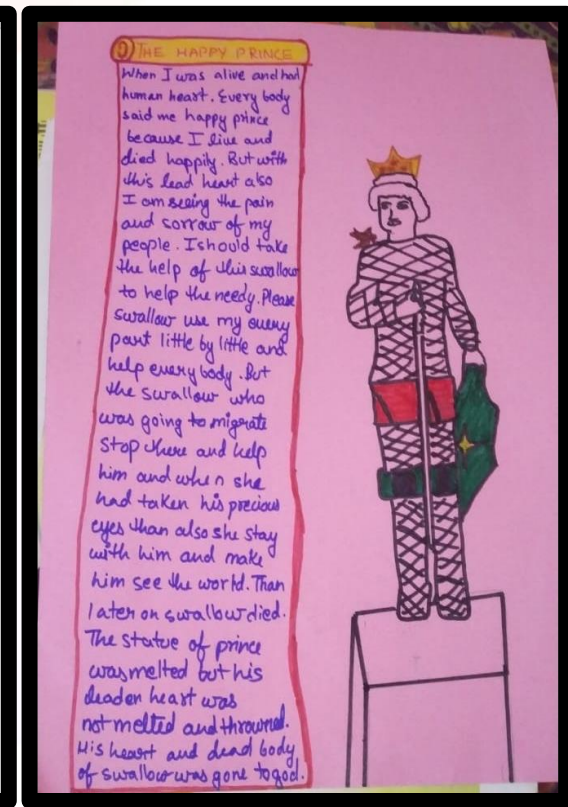 THE HAPPY PRINCE
When I was alive and had
human heart. Every body
said me happy prince
because I live and
died happily. But with
this lead heart also
I am seeing the pain
and sorrow of my
people. I should take
the help of this swallow
to help the needy. Please
swallow use my every
part little by little and
help every body. But
the swallow who
was going to migrate
stop there and help
him and when she
had taken his precious
eyes than also she stay
with him and make
him see the world. Than
later on swallow died.
The statue of prince
was melted but his
leaden heart was
not melted and throwned.
His heart and dead body
of swallow was gone to god.